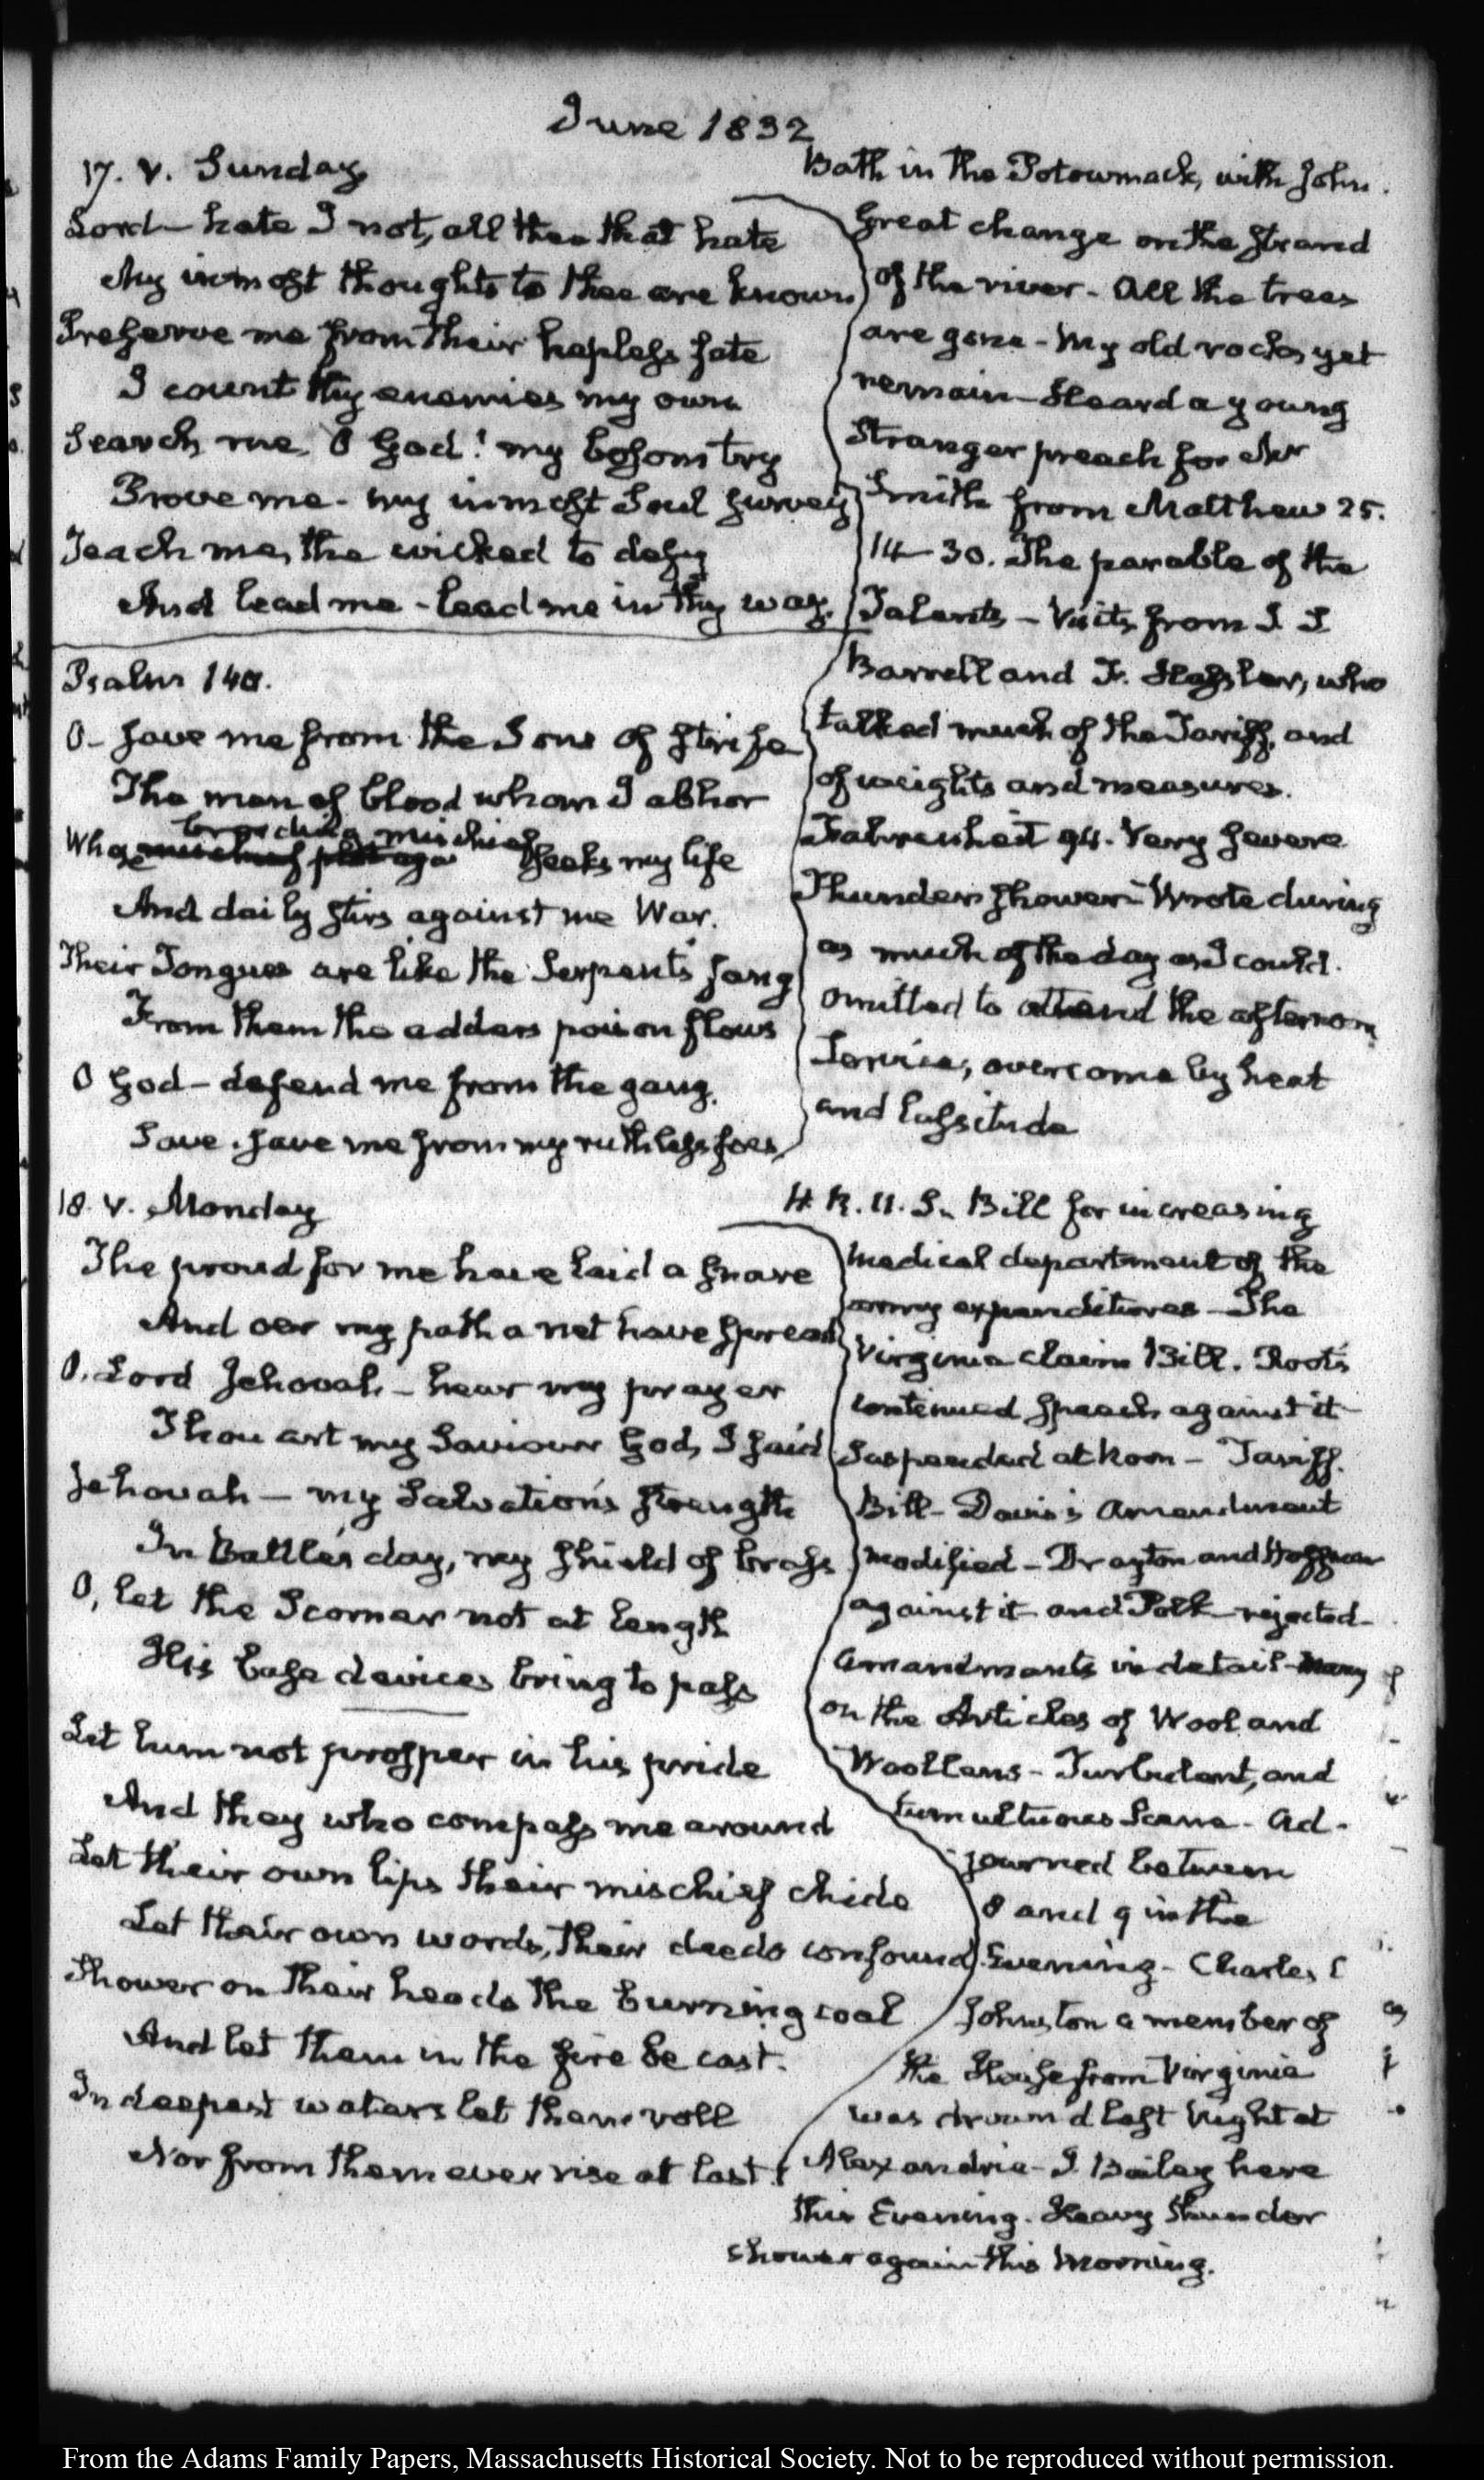 June 1832
17. V. Sunday
Lord — hate I not, all them that hate
My inmost thoughts to thee are known
Preserve me from their hapless fate
I count thy enemies my own
Search me, O God! my bosom try
Prove me - my inmost Soul survey
Teach me, the wicked to defy
And lead me - lead me in thy way.
Psalm 140.
O - save me from the Sons of strife
The men of blood whom I abhor
Whose brooding mischief seeks my life
And daily stirs against me War.
Their Tongues are like the Serpent's fang
From them the adders poison flows
O God - defend me from the gang.
Save - save me from my ruthless foes
Bath in the Potowmack, with John.
Great change on the strand
of the river - All the trees
are gone - My old rocks yet
remain - Heard a young
Stranger preach for Mr
Smith from Matthew 25.
14-30. The parable of the
Talents - Visits from
Barrell and F. Hassler, who
talked much of the Tariff, and
of weights and measures.
Fahrenheit 94. Very severe
Thunder shower - Wrote during
as much of the day as I could.
omitted to attend the afternoon
Service, overcome by heat
and lassitude
18. V. Monday
The proud for me have laid a snare
And oer my path a net have spread
O, Lord Jehovah - hear my prayer
Thou art my Saviour God, I said
Jehovah - my Salvation's strength
In Battle's day, my shield of brass
O, let the Scorner not at length
His base devices bring to pass
Let him not prosper in his pride
And they who compass me around
Let their own lips their mischief chide
Let their own words, their deeds confound
Shower on their heads the burning coal
And let them in the fire be cast.
In deepest waters let them roll
Nor from them ever rise at last.
H. R. U. S. Bill for increasing
medical department of the
army expenditures - The
Virginia claim Bill. Root's
continued speech against it
Suspended at Noon - Tariff.
Bill - Davis's Amendment
modified - Drayton and Hoffman
against it and Polk - rejected -
Amendments in detail - Many
on the Articles of Wool and
Woollens - Turbulent, and
tumultuous Scene - Ad-
journed between
8 and 9 in the
Evening - Charles C
Johnston a member of
the House from Virginia
was drown'd last Night at
Alexandria - J. Bailey here
this Evening. Heavy thunder
shower again this Morning.
From the Adams Family Papers, Massachusetts Historical Society. Not to be reproduced without permission.